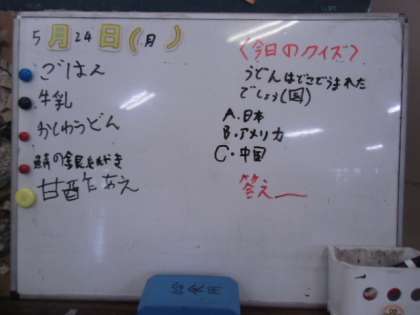 5月24日(月)
ごはん
牛乳
かしわうどん
鯖の銀紙やき
甘酢あえ
〈今日のクイズ〉
うどんはどこでうまれた
でしょう(国)
A.日本
B.アメリカ
C.中国
答え
給食用